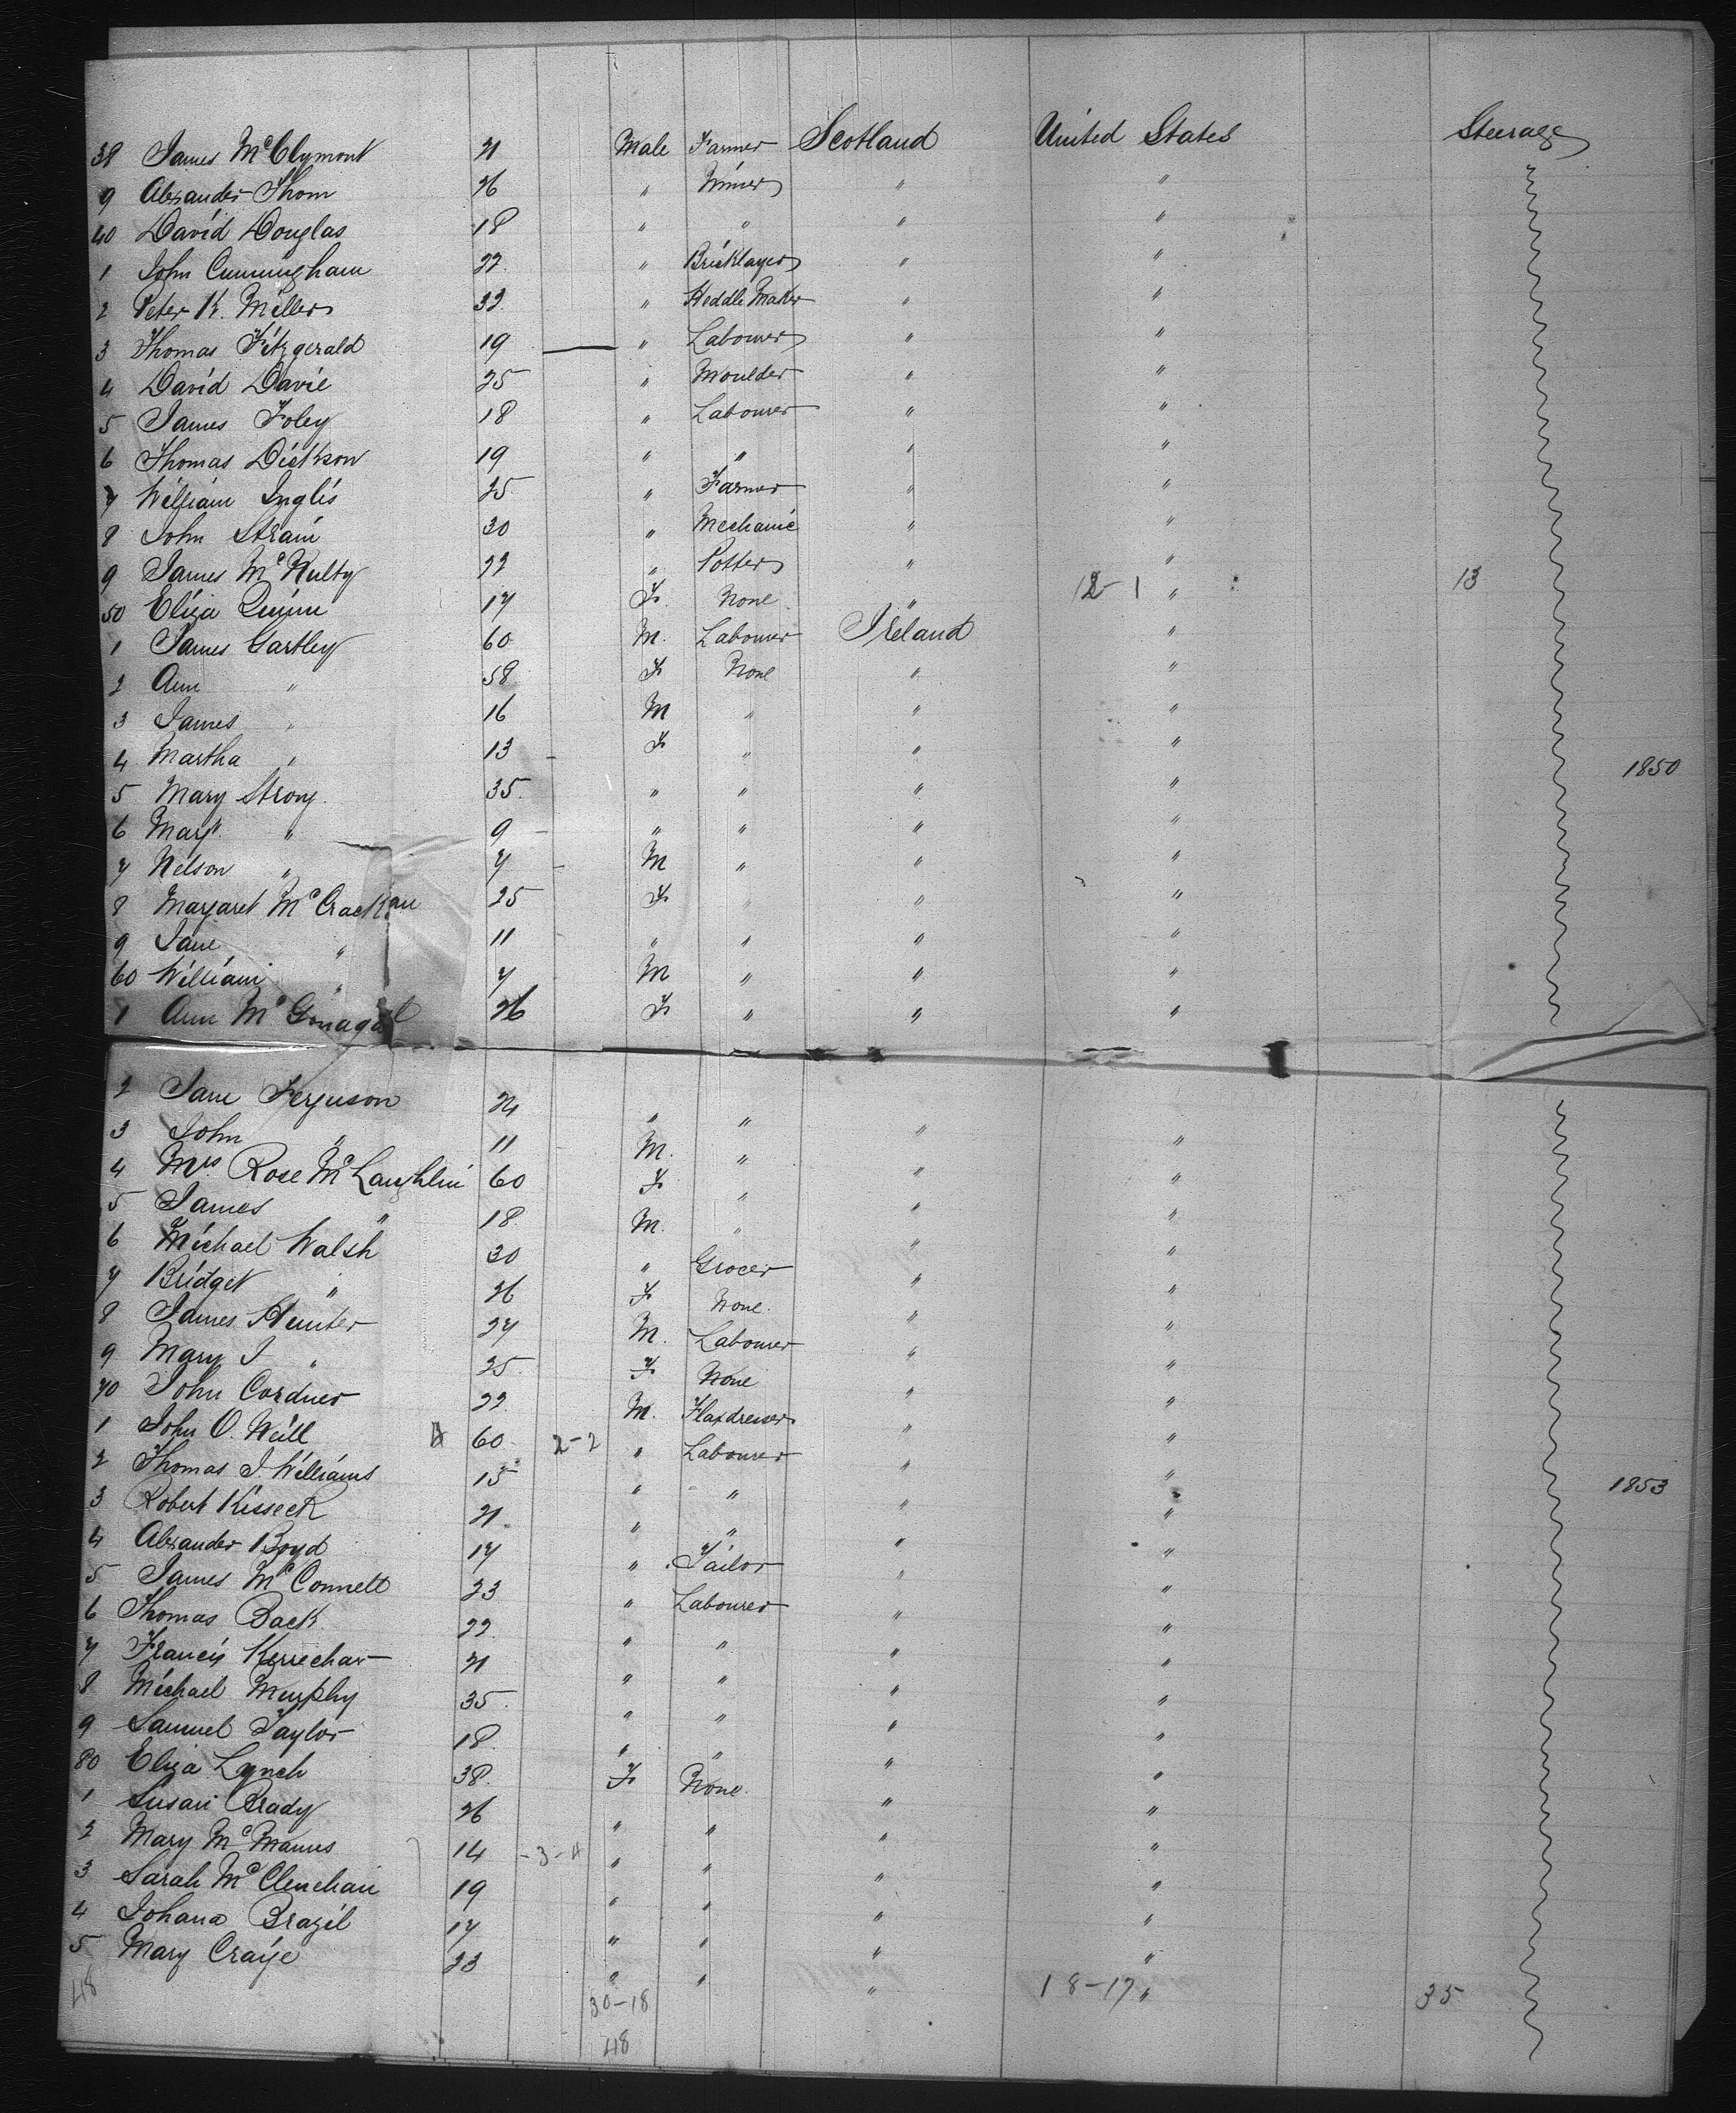 38 James McClymont 21 Male Farmer Scotland United States Steerage
9 Alexander Thom 26 " Miner " "
40 David Douglas 18 " " " "
1 John Cunningham 22 " Bricklayer " "
2 Peter K. Miller 32 " Heddle Maker " "
3 Thomas Fitzgerald 19 — " Labourer " "
4 David Davie 25 " Moulder " "
5 James Foley 18 " Labourer " "
6 Thomas Dickson 19 " " " "
7 William Inglis 25 " Farmer " "
8 John Strain 30 " Mechanic " "
9 James McNulty 22 " Potter " "
50 Eliza Quinn 17 F. None " 12-1 " 13
1 James Gartley 60 M. Labourer Ireland "
2 Ann " 58 F None " "
3 James " 16 M " " "
4 Martha " 13 - F " " "
1850
5 Mary Strong 35 " " " "
6 Mary " 9 - " " " "
7 Nelson " 7 - M " " "
8 Margaret McCrackan 25 F " " "
9 Jane " 11 " " " "
60 William " 7 M " " "
1 Ann McGonagal 26 F " " "
2 Jane Ferguson 24 " " " "
3 John " 11 M. " " "
4 Mrs Rose McLaughlin 60 F " " "
5 James " 18 M. " " "
6 Michael Walsh 30 " Grocer " "
7 Bridget " 26 F None. " "
8 James Hunter 27 M. Labourer " "
9 Mary J " 25 F None " "
70 John Cordner 22 M. Flaxdresser " "
1 John O. Neill 60 2-2 " Labourer " "
2 Thomas J. Williams 15 " " " "
1853
3 Robert Kisseck 21 " " " "
4 Alexander Boyd 17 " Tailor " "
5 James McConnell 23 " Labourer " "
6 Thomas Back 22 " " " "
7 Francis 21 " " " "
8 Michael Murphy 35 " " " "
9 Samuel Taylor 18 " " " "
80 Eliza Lynch 38 F None. " "
1 Susan Brady 26 " " " "
2 Mary McManus 14 -3-4 " " " "
3 Sarah McClenchan 19 " " " "
4 Johana Brazil 17 " " " "
5 Mary Craije 23 " " " 18-17 " 35
48 30-18
48